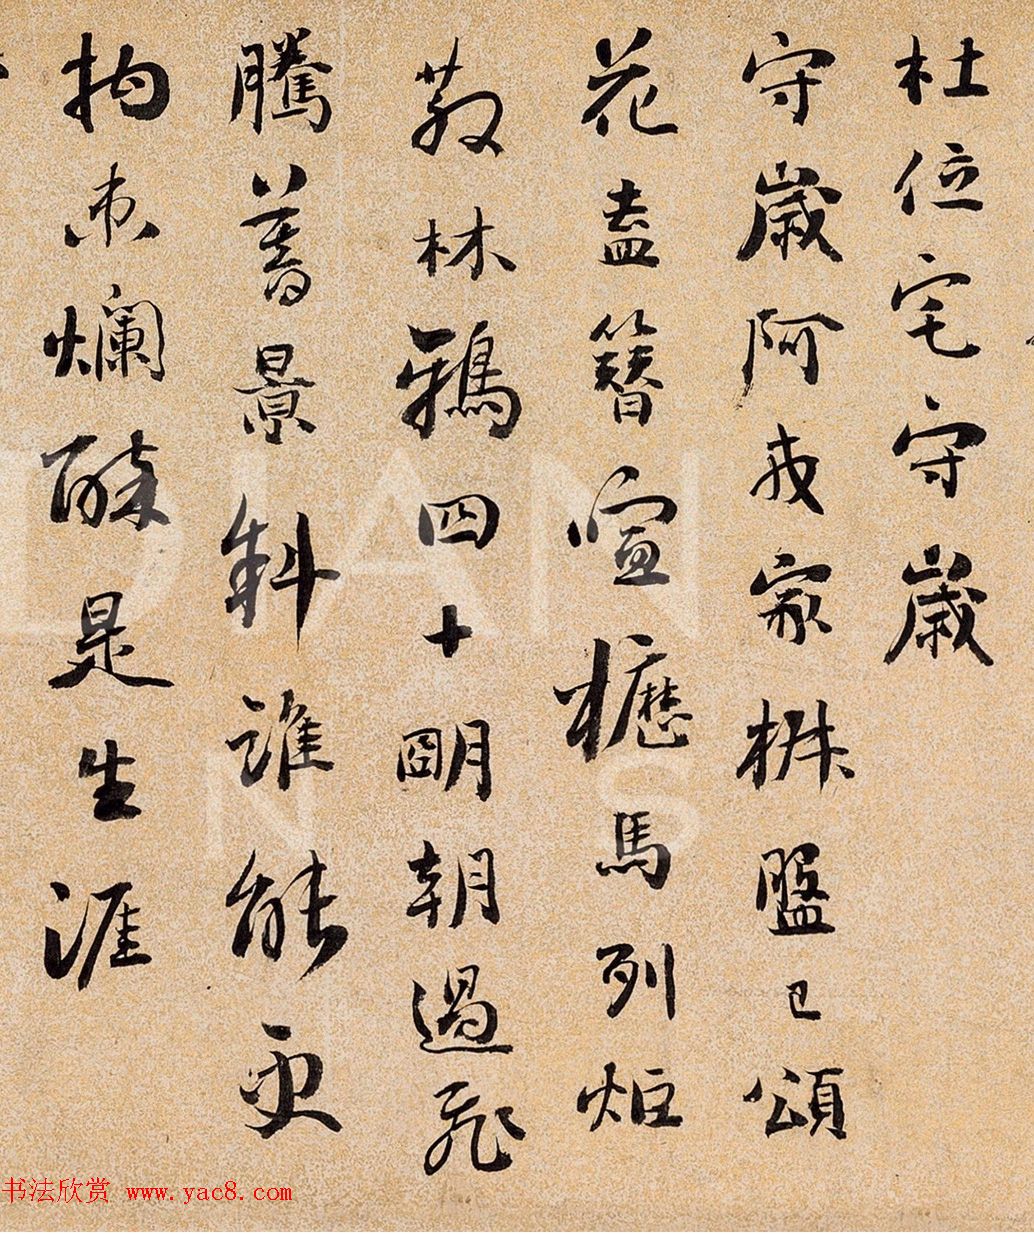 杜位宅守歲
守歲阿戎家椒盤已頌
花盍簪喧櫪馬列炬
散林鴉四十朙朝過飛
騰暮景斜誰能更
拘束爛醉是生涯
DIAN
N S
书法欣赏 www.yac8.com